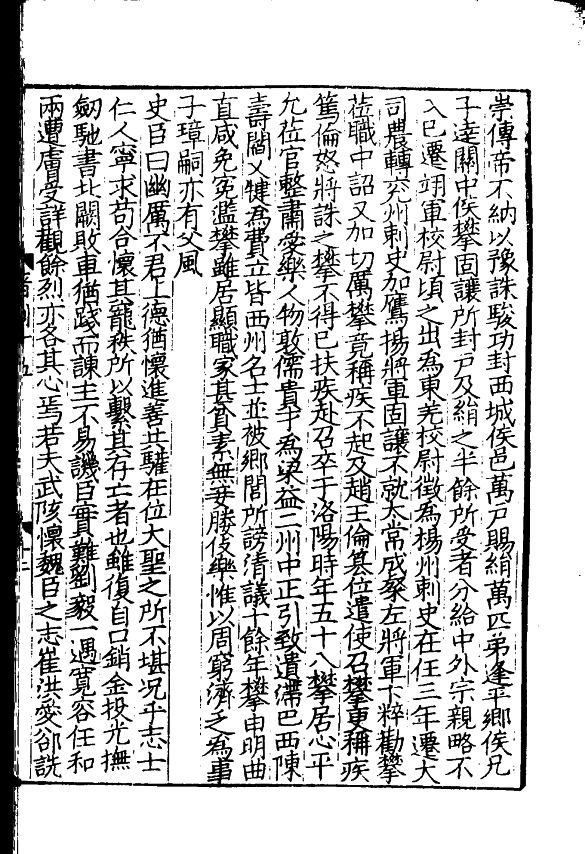 崇傅帝不納以豫誅駿功封西城侯邑萬戸賜絹萬匹弟逢平鄉侯兄
子逵關中侯攀固讓所封戸及絹之半餘所受者分給中外宗親略不
入已遷翊軍校尉頃之出為東羌校尉徵為楊州刺史在任三年遷大
司農轉兖州刺史加鷹揚將軍固讓不就太常成粲左將軍卞粹勸攀
莅職中詔又加切厲攀竟稱疾不起及趙王倫簒位遣使召攀更稱疾
篤倫怒將誅之攀不得已扶疾赴召卒于洛陽時年五十八攀居心平
允莅官整肅愛樂人物敦儒貴才為梁益二州中正引致遺滯巴西陳
壽閻乂犍為費立皆西州名士並被鄉閭所謗清議十餘年攀申明曲
直咸免冤濫攀雖居顯職家甚貧素無妾媵伎樂惟以周窮濟乏為事
子璋嗣亦有父風
史臣曰幽厲不君上德猶懷進善共驩在位大聖之所不堪況乎志士
仁人寧求苟合懷其寵秩所以繫其存亡者也雖復自口銷金投光撫
劒馳書北闕敗車猶踐而諫主不易譏臣實難劉毅一遇寬容任和
兩遭膚受詳觀餘烈亦各其心焉若夫武陔懷魏臣之志崔洪愛郤詵